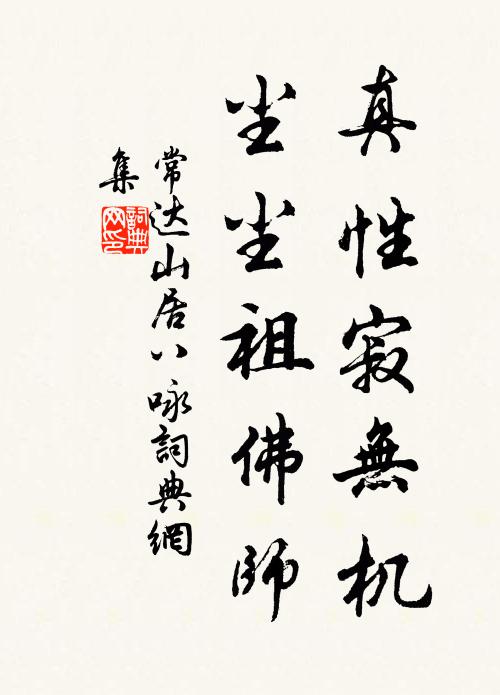 真性寂無机
尘尘祖佛師
常达山居八咏詞典網
集
詞典網印